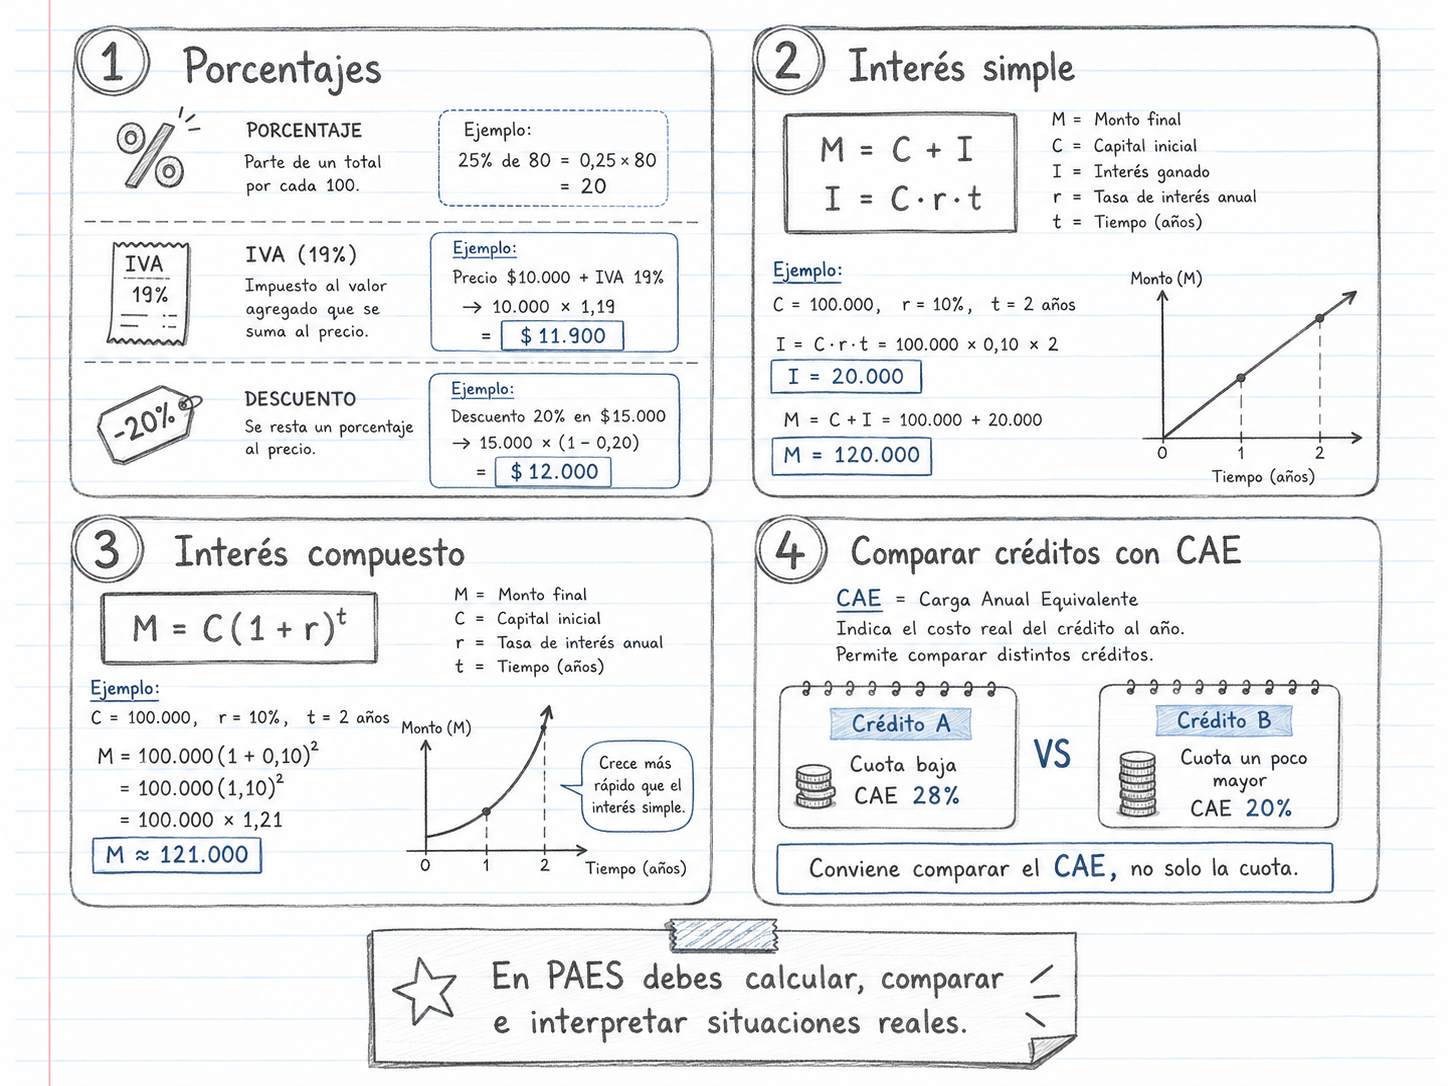 1 Porcentajes
%
PORCENTAJE
Parte de un total
por cada 100.
Ejemplo:
25% de 80 = 0,25 × 80
= 20
IVA
19%
IVA (19%)
Impuesto al valor
agregado que se
suma al precio.
Ejemplo:
Precio $10.000 + IVA 19%
→ 10.000 × 1,19
= $ 11.900
-20%
DESCUENTO
Se resta un porcentaje
al precio.
Ejemplo:
Descuento 20% en $15.000
→ 15.000 × (1 – 0,20)
= $ 12.000
2 Interés simple
M = C + I
I = C · r · t
M = Monto final
C = Capital inicial
I = Interés ganado
r = Tasa de interés anual
t = Tiempo (años)
Ejemplo:
C = 100.000, r = 10%, t = 2 años
I = C · r · t = 100.000 × 0,10 × 2
I = 20.000
M = C + I = 100.000 + 20.000
M = 120.000
Monto (M)
0 1 2
Tiempo (años)
3 Interés compuesto
M = C (1 + r)^t
M = Monto final
C = Capital inicial
r = Tasa de interés anual
t = Tiempo (años)
Ejemplo:
C = 100.000, r = 10%, t = 2 años
M = 100.000 (1 + 0,10)²
= 100.000 (1,10)²
= 100.000 × 1,21
M ≈ 121.000
Monto (M)
0 1 2 Tiempo (años)
Crece más
rápido que el
interés simple.
4 Comparar créditos con CAE
CAE = Carga Anual Equivalente
Indica el costo real del crédito al año.
Permite comparar distintos créditos.
Crédito A
Cuota baja
CAE 28%
VS
Crédito B
Cuota un poco
mayor
CAE 20%
Conviene comparar el CAE, no solo la cuota.
En PAES debes calcular, comparar
e interpretar situaciones reales.